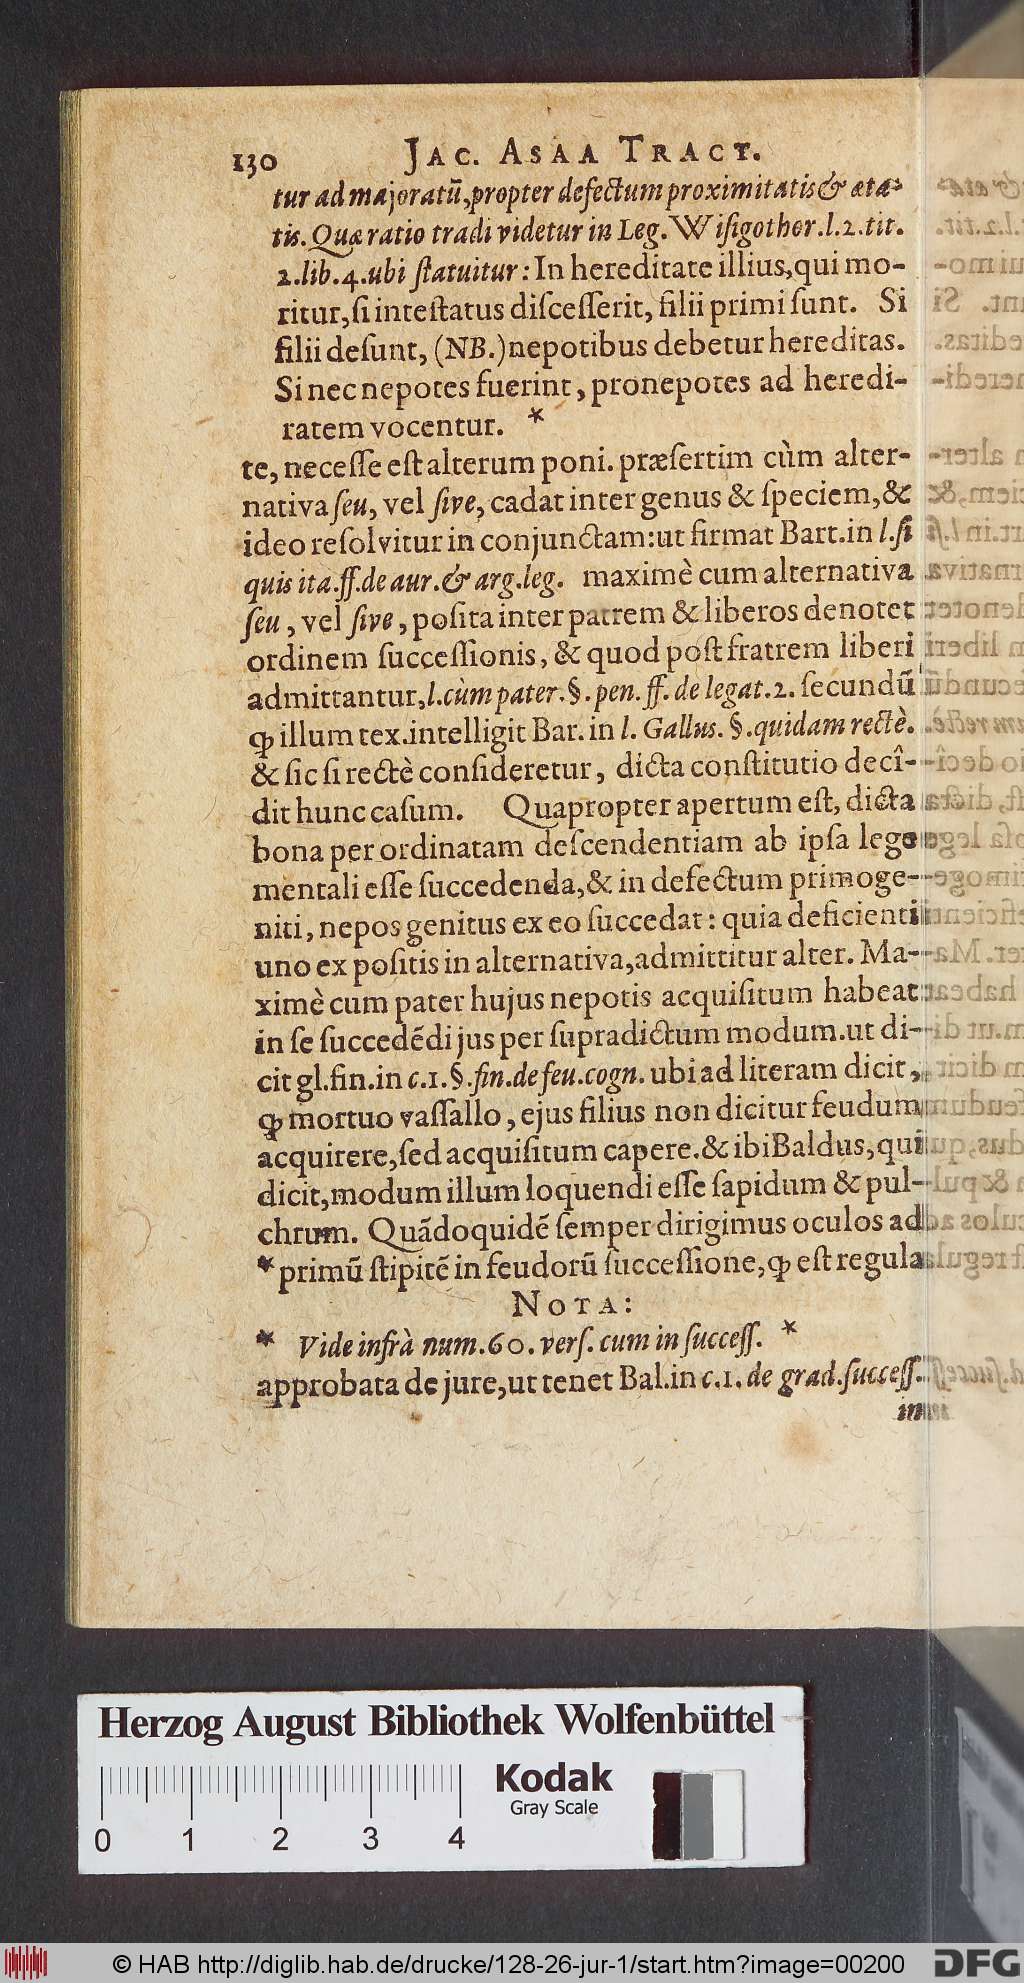 130 JAC. ASAA TRACT.
tur ad majoratũ, propter defectum proximitatis & æta-
tis. Quæ ratio tradi videtur in Leg. Wisigothor. l. 2. tit.
2. lib. 4. ubi ſtatuitur: In hereditate illius, qui mo-
ritur, ſi inteſtatus diſceſſerit, filii primi ſunt. Si
filii deſunt, (NB.) nepotibus debetur hereditas.
Si nec nepotes fuerint, pronepotes ad heredi-
tatem vocentur. *
te, neceſſe eſt alterum poni. præſertim cùm alter-
nativa ſeu, vel ſive, cadat inter genus & ſpeciem, &
ideo reſolvitur in conjunctam: ut firmat Bart. in l. ſi
quis ita. ff. de aur. & arg. leg. maximè cum alternativa
ſeu, vel ſive, poſita inter patrem & liberos denotet
ordinem ſucceſſionis, & quod poſt fratrem liberi
admittantur, l. cùm pater. §. pen. ff. de legat. 2. ſecundũ
ꝙ illum tex. intelligit Bar. in l. Gallus. §. quidam rectè.
& ſic ſi rectè conſideretur, dicta conſtitutio decî-
dit hunc caſum. Quapropter apertum eſt, dicta
bona per ordinatam deſcendentiam ab ipſa lege
mentali eſſe ſuccedenda, & in defectum primoge-
niti, nepos genitus ex eo ſuccedat: quia deficienti
uno ex poſitis in alternativa, admittitur alter. Ma-
ximè cum pater hujus nepotis acquiſitum habeat
in ſe ſuccedẽdi jus per ſupradictum modum. ut di-
cit gl. fin. in c. 1. §. fin. de feu. cogn. ubi ad literam dicit,
ꝙ mortuo vaſſallo, ejus filius non dicitur feudum
acquirere, ſed acquiſitum capere. & ibi Baldus, qui
dicit, modum illum loquendi eſſe ſapidum & pul-
chrum. Quãdoquidẽ ſemper dirigimus oculos ad
* primũ ſtipitẽ in feudorũ ſucceſſione, ꝙ eſt regula
NOTA:
* Vide infrà num. 60. verſ. cum in ſucceſſ. *
approbata de jure, ut tenet Bal. in c. 1. de grad. ſucceſſ.
in
Herzog August Bibliothek Wolfenbüttel
Kodak
Gray Scale
0 1 2 3 4
© HAB http://diglib.hab.de/drucke/128-26-jur-1/start.htm?image=00200
DFG